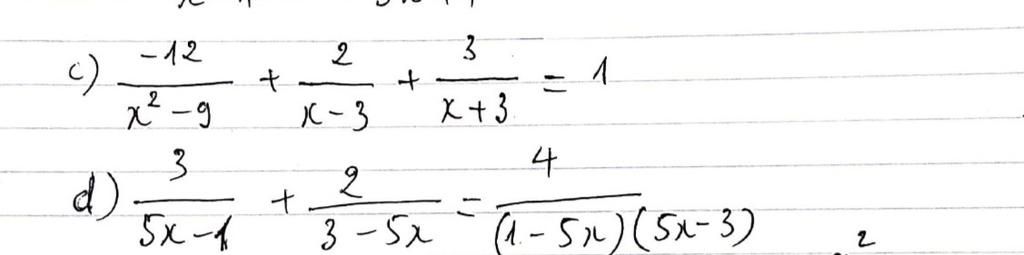 c) -12/(x² - 9) + 2/(x - 3) + 3/(x + 3) = 1
d) 3/(5x - 1) + 2/(3 - 5x) = 4/((1 - 5x)(5x - 3))
2